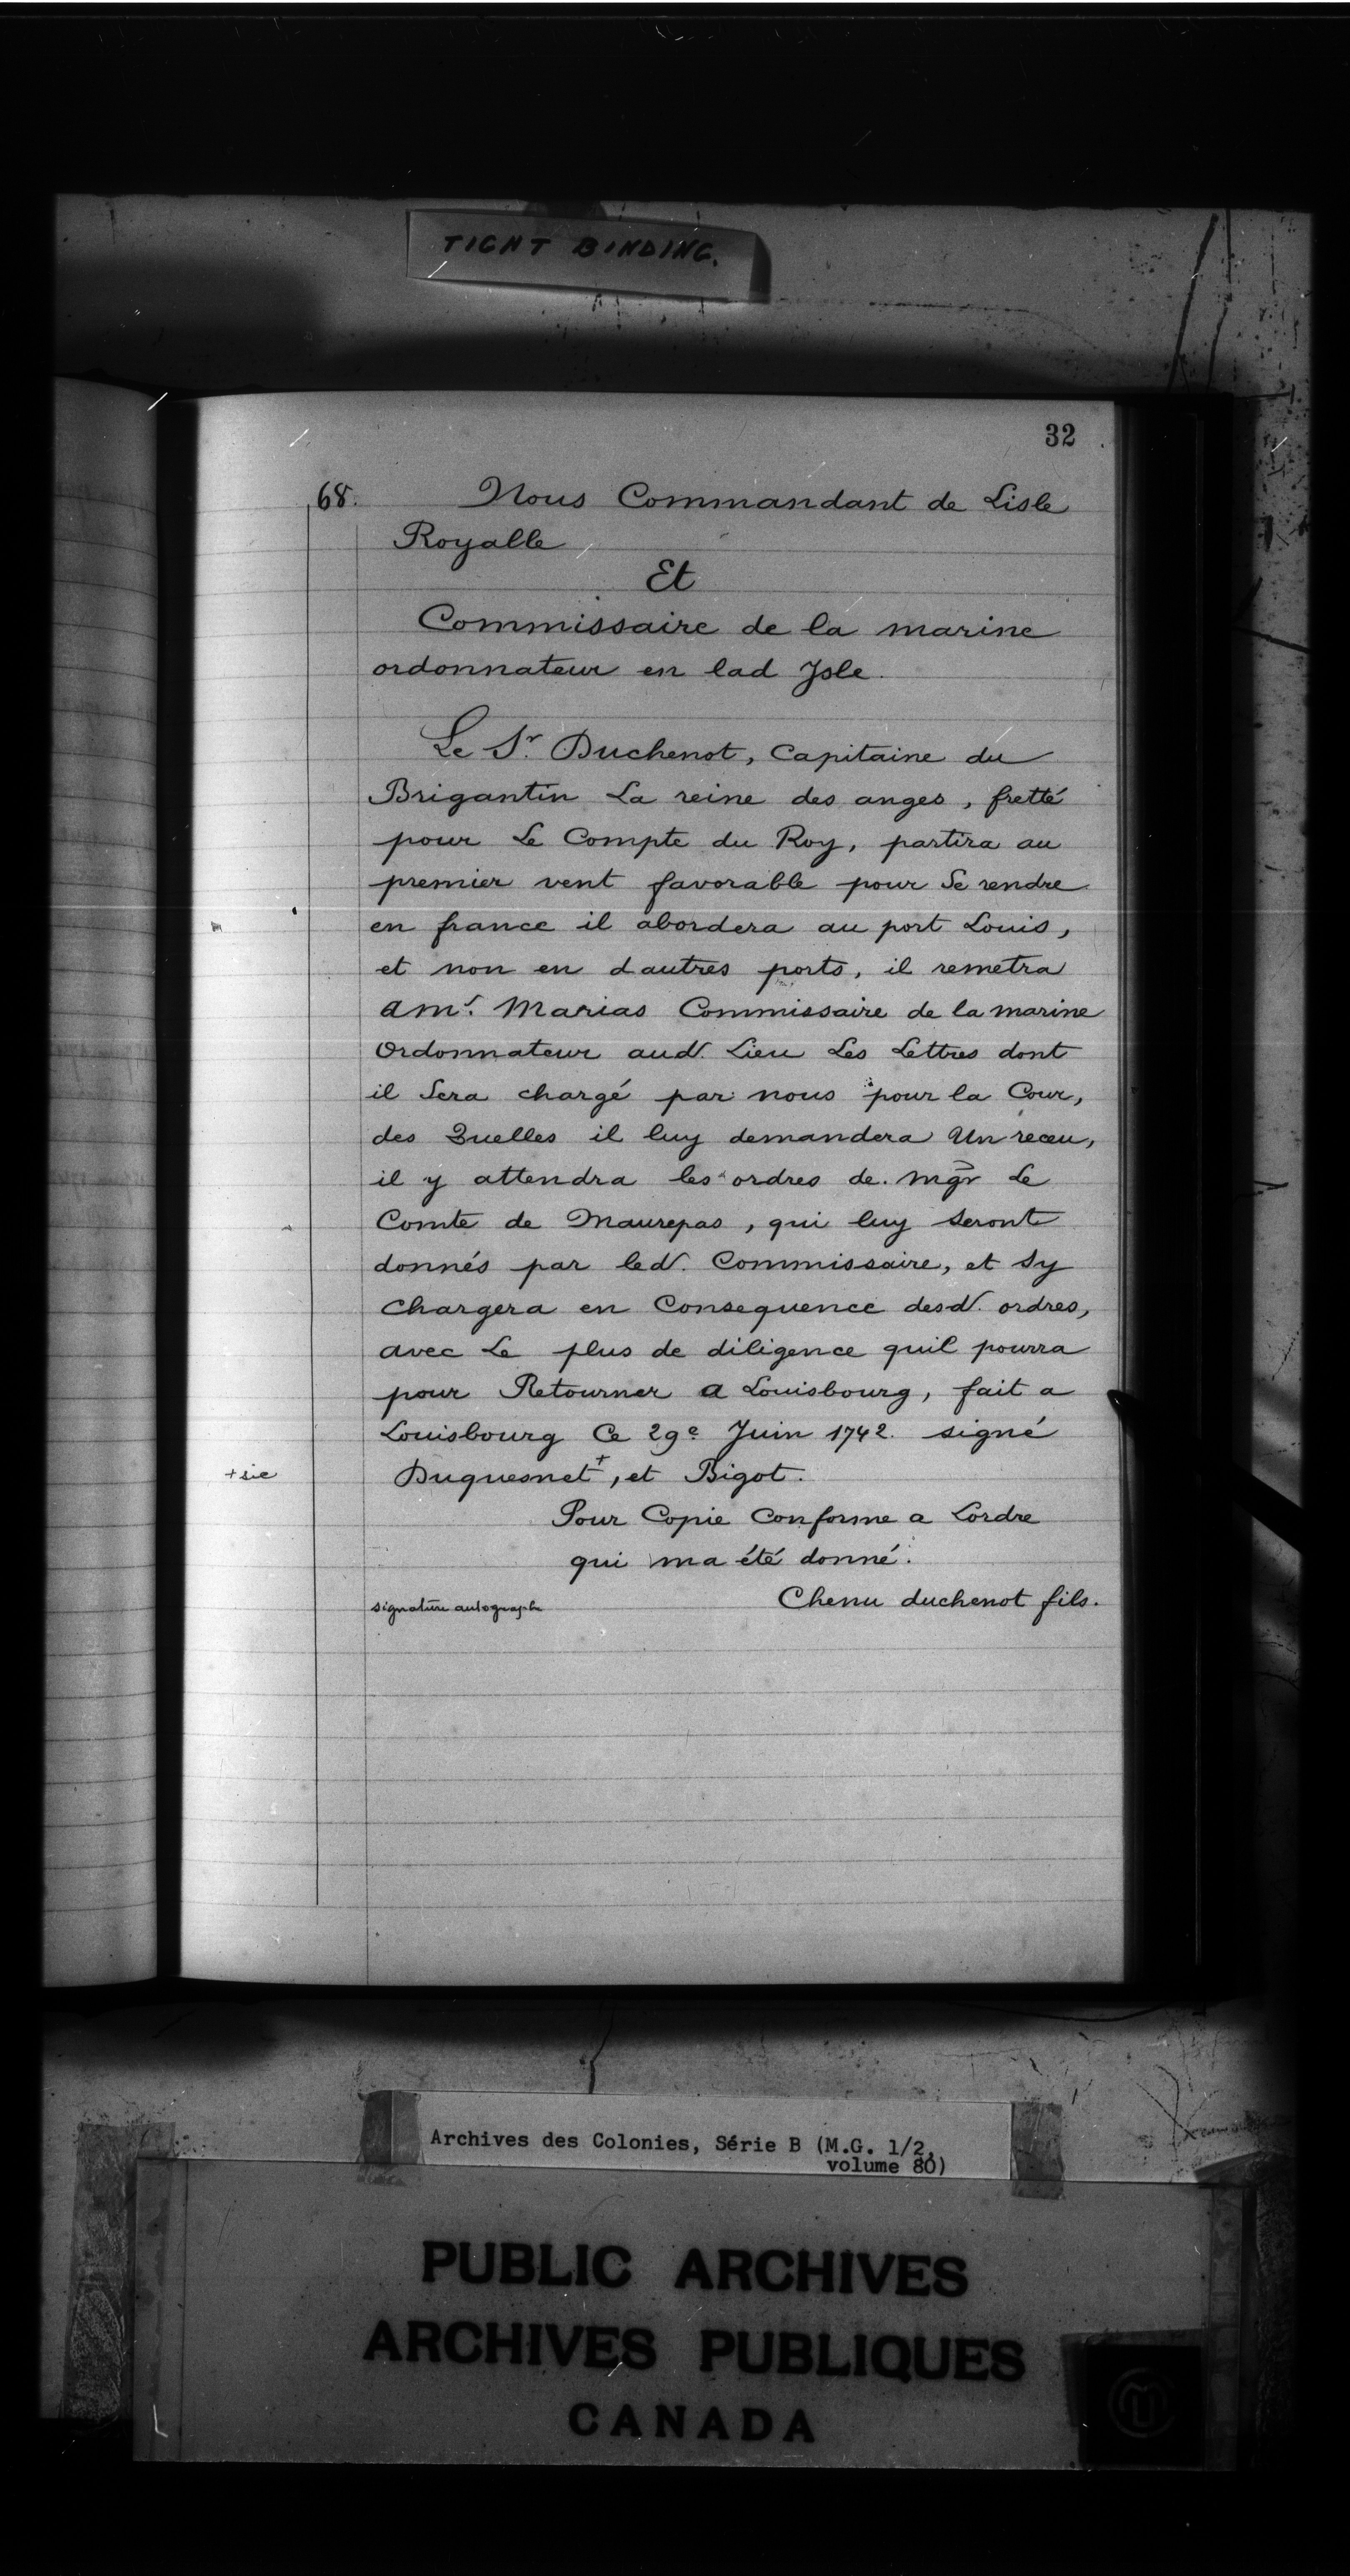 TIGHT BINDING.
32
68. Nous Commandant de Lisle
Royalle
Et
Commissaire de la marine
ordonnateur en lad Jsle.
Le Sr. Duchenot, Capitaine du
Brigantin La reine des anges, fretté
pour Le Compte du Roy, partira au
premier vent favorable pour Se rendre
en france il abordera au port Louis,
et non en dautres ports, il remetra
a mr. Marias Commissaire de la marine
Ordonnateur aud. Lieu Les Lettres dont
il Sera chargé par nous pour la Cour,
des Quelles il luy demandera Un receu,
il y attendra les ordres de mgr Le
Comte de Maurepas, qui luy seront
donnés par led. Commissaire, et sy
chargera en Consequence desd. ordres,
avec Le plus de diligence quil pourra
pour Retourner a Louisbourg, fait a
Louisbourg Ce 29e Juin 1742. signé
+ sic Duquesnet+, et Bigot.
Pour Copie Conforme a Lordre
qui ma été donné.
signature autographe Chenu duchenot fils.
Archives des Colonies, Série B (M.G. 1/2,
volume 80)
PUBLIC ARCHIVES
ARCHIVES PUBLIQUES
CANADA